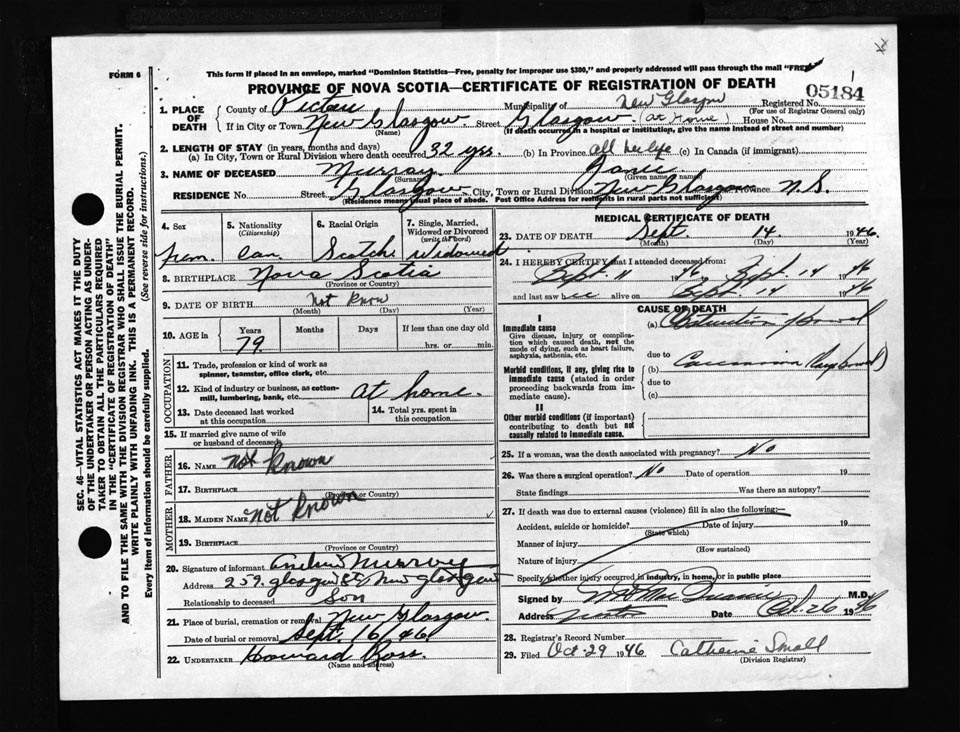 FORM 6
This form if placed in an envelope, marked "Dominion Statistics—Free, penalty for improper use $300," and properly addressed will pass through the mail "FREE
PROVINCE OF NOVA SCOTIA—CERTIFICATE OF REGISTRATION OF DEATH
05184
1. PLACE OF DEATH
County of Pictou Municipality of New Glasgow Registered No.
(For use of Registrar General only)
If in City or Town New Glasgow Street Glasgow (at Home) House No.
(Name) (If death occurred in a hospital or institution, give the name instead of street and number)
2. LENGTH OF STAY (in years, months and days)
(a) In City, Town or Rural Division where death occurred 32 yrs. (b) In Province all her life (c) In Canada (if immigrant)
3. NAME OF DECEASED Murray Janie
(Surname) (Given name)
RESIDENCE No. Street Glasgow City, Town or Rural Division New Glasgow Province N.S.
(Residence means usual place of abode. Post Office Address for residents in rural parts not sufficient)
SEC. 46—VITAL STATISTICS ACT MAKES IT THE DUTY
OF THE UNDERTAKER OR PERSON ACTING AS UNDER-
TAKER TO OBTAIN ALL THE PARTICULARS REQUIRED
IN THE "CERTIFICATE OF REGISTRATION OF DEATH"
AND TO FILE THE SAME WITH THE DIVISION REGISTRAR WHO SHALL ISSUE THE BURIAL PERMIT.
WRITE PLAINLY WITH UNFADING INK. THIS IS A PERMANENT RECORD.
Every item of information should be carefully supplied. (See reverse side for instructions.)
4. Sex
5. Nationality (Citizenship)
6. Racial Origin
7. Single, Married, Widowed or Divorced (write the word)
fem. Can. Scotch Widowed
8. BIRTHPLACE Nova Scotia
(Province or Country)
9. DATE OF BIRTH Not know
(Month) (Day) (Year)
10. AGE in Years Months Days If less than one day old
79 hrs. or min.
OCCUPATION
11. Trade, profession or kind of work as spinner, teamster, office clerk, etc.
12. Kind of industry or business, as cotton-mill, lumbering, bank, etc. At home.
13. Date deceased last worked at this occupation
14. Total yrs. spent in this occupation
15. If married give name of wife or husband of deceased
FATHER
16. NAME Not Known
17. BIRTHPLACE
(Province or Country)
MOTHER
18. MAIDEN NAME Not Known
19. BIRTHPLACE
(Province or Country)
20. Signature of informant Murray
Address 259 Glasgow St, New Glasgow
Relationship to deceased Son
21. Place of burial, cremation or removal New Glasgow.
Date of burial or removal Sept. 16/46
22. UNDERTAKER Howard Ross.
(Name and address)
MEDICAL CERTIFICATE OF DEATH
23. DATE OF DEATH Sept. 14 1946
(Month) (Day) (Year)
24. I HEREBY CERTIFY that I attended deceased from:
Sept 11 1946 Sept. 14 1946
and last saw alive on Sept. 14 1946
CAUSE OF DEATH
I
Immediate cause
Give disease, injury or complication which caused death, not the mode of dying, such as heart failure, asphyxia, asthenia, etc.
(a) Obstruction bowel
due to
Morbid conditions, if any, giving rise to immediate cause (stated in order proceeding backwards from immediate cause).
(b) Carcinoma
due to
(c)
II
Other morbid conditions (if important) contributing to death but not causally related to immediate cause.
25. If a woman, was the death associated with pregnancy? No
26. Was there a surgical operation? No Date of operation 19
State findings Was there an autopsy?
27. If death was due to external causes (violence) fill in also the following:
Accident, suicide or homicide? Date of injury 19
(State which)
Manner of injury
(How sustained)
Nature of injury
Specify whether injury occurred in industry, in home, or in public place
Signed by M.D.
Address Date Oct. 26 1946
28. Registrar's Record Number
29. Filed Oct-29 1946 Catherine Small
(Division Registrar)